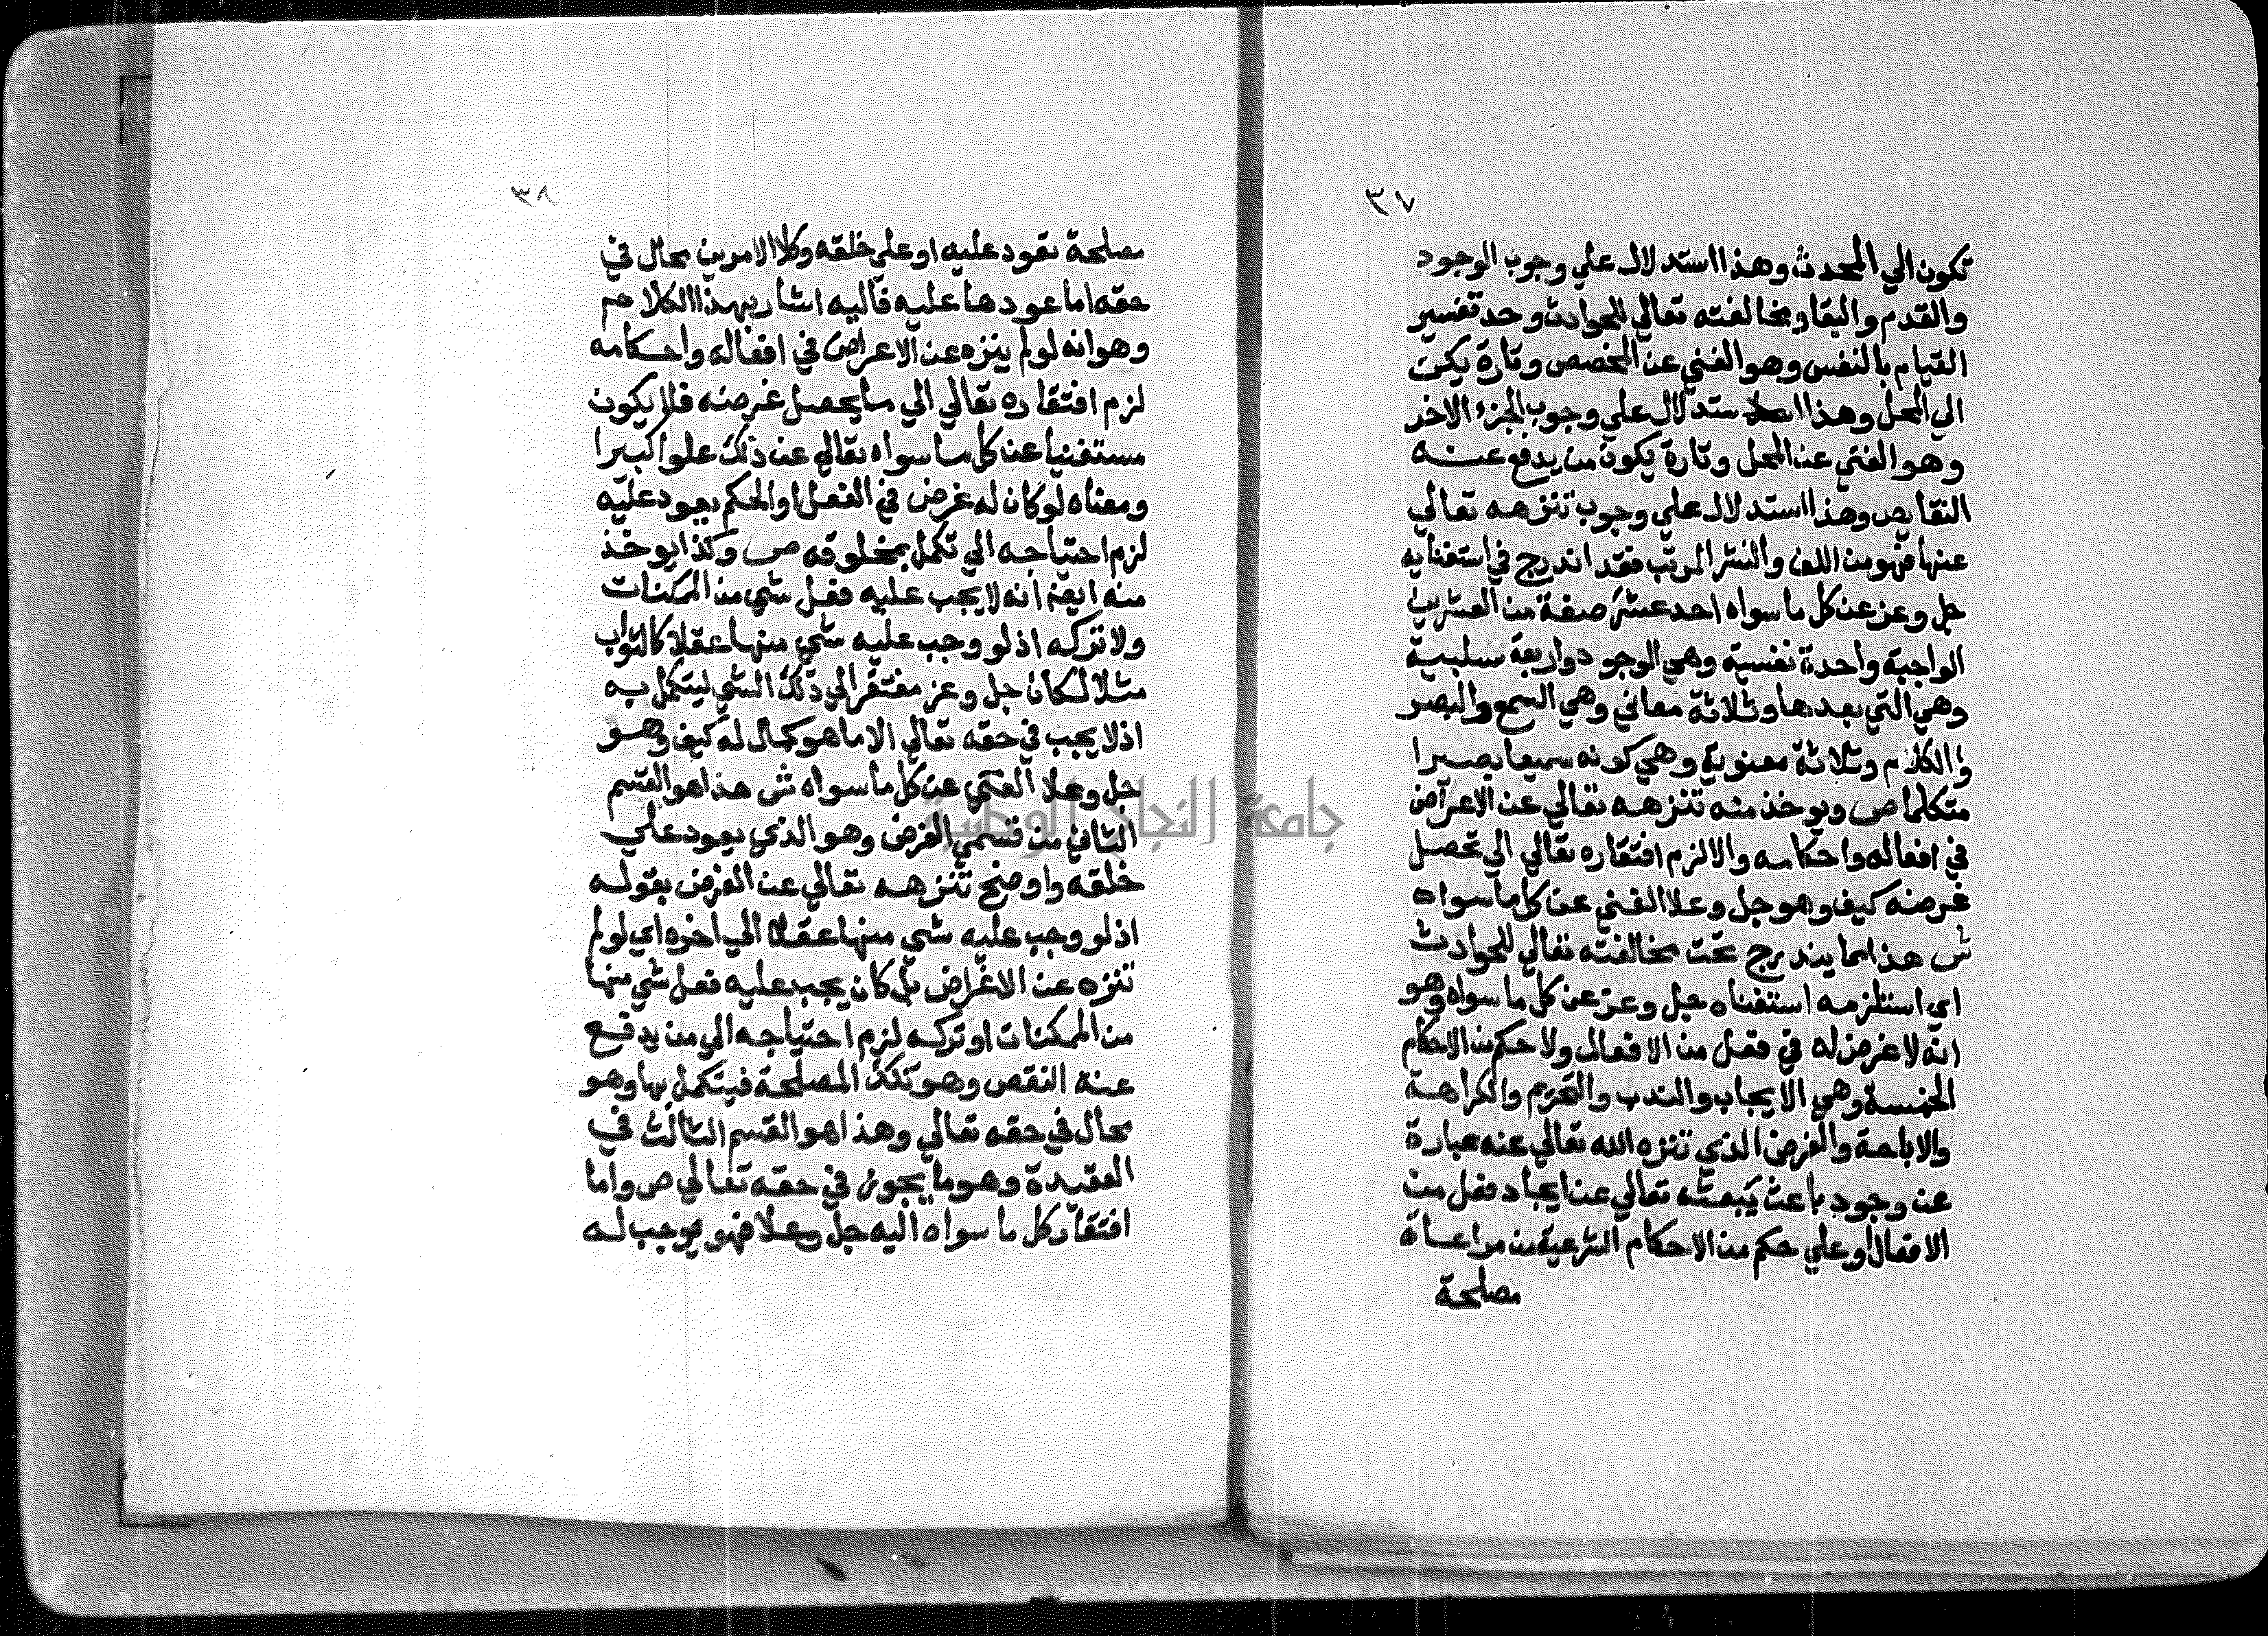 ٣٧
تكون الي المحدث وهذا استدلال علي وجوب الوجود
والقدم والبقا ومخالفته تعالي للحوادث وحد تفسير
القيام بالنفس وهو الغني عن المخصص وتارة يكن
الي المحل وهذا استدلال علي وجوب الجزء الاخر
وهو الغني عن المحل وتارة يكون من يدفع عنه
النقايص وهذا استدلال علي وجوب تنزهه تعالي
عنها فهو من اللف والنشر المرتب فقد اندرج في استغنايه
جل وعز عن كل ما سواه احد عشر صفة من العشرين
الواجبة واحدة نفسية وهي الوجود واربعة سلبية
وهي التي بعدها وثلاثة معاني وهي السمع والبصر
والكلام وثلاثة معنوية وهي كونه سميعا بصيرا
متكلما ص ويوخذ منه تنزهه تعالي عن الاعراض
في افعاله واحكامه والالزم افتقاره تعالي الي تحصل
غرضه كيف وهو جل وعلا الغني عن كل ما سواه
ش هذا مما يندرج تحت مخالفته تعالي للحوادث
اي استلزمه استغناه جل وعز عن كل ما سواه وهو
انه لا غرض له في فعل من الافعال ولا حكم من الاحكام
الخمسة وهي الايجاب والندب والتحريم والكراهة
والاباحة والغرض الذي تنزه الله تعالي عنه عبارة
عن وجود باعث يبعثه تعالي عن ايجاد فعل من
الافعال او علي حكم من الاحكام الشرعية من مراعاة
مصلحة
٣٨
مصلحة تعود عليه او علي خلقه وكلا الامرين محال في
حقه اما عودها عليه فاليه اشار بهذا الكلام
وهو انه لو لم ينزه عن الاعراض في افعاله واحكامه
لزم افتقاره تعالي الي ما يحصل غرضه فلا يكون
مستغنيا عن كل ما سواه تعالي عن ذلك علوا كبيرا
ومعناه لو كان له غرض في الفعل او الحكم يعود عليه
لزم احتياجه الي تكمل بمخلوقه ص وكذا يوخذ
منه ايضا انه لا يجب عليه فعل شي من الممكنات
ولا تركه اذ لو وجب عليه شي منها عقلا كالثواب
مثلا لكان جل وعز مفتقرا الي ذلك الشي ليتكمل به
اذ لا يجب في حقه تعالي الا ما هو كمال له كيف وهو
جل وعلا الغني عن كل ما سواه ش هذا هو القسم
الثاني من قسمي الغرض وهو الذي يعود علي
خلقه واوضح تنزهه تعالي عن الغرض بقوله
اذ لو وجب عليه شي منها عقلا الي اخره اي لو لم
تنزه عن الاغراض بل كان يجب عليه فعل شي منها
من الممكنات او تركه لزم احتياجه الي من يدفع
عنه النقص وهو تلك المصلحة فيتكمل بها وهو
محال في حقه تعالي وهذا هو القسم الثالث في
العقيدة وهو ما يجوز في حقه تعالي ص واما
افتقار كل ما سواه اليه جل وعلا فهو يوجب له
جامعة النجاح الوطنية